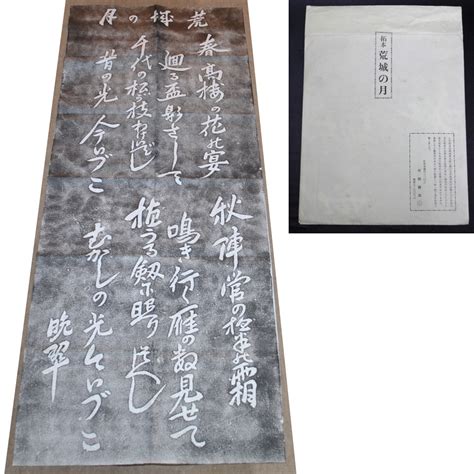 荒城の月
春高楼の花の宴
廻る盃影さして
千代の松が枝わけいでし
昔の光今いづこ
秋陣営の夜半の霜
鳴き行く雁の数見せて
植うる剱に照りそひし
むかしの光今いづこ
晩翠
拓本 荒城の月